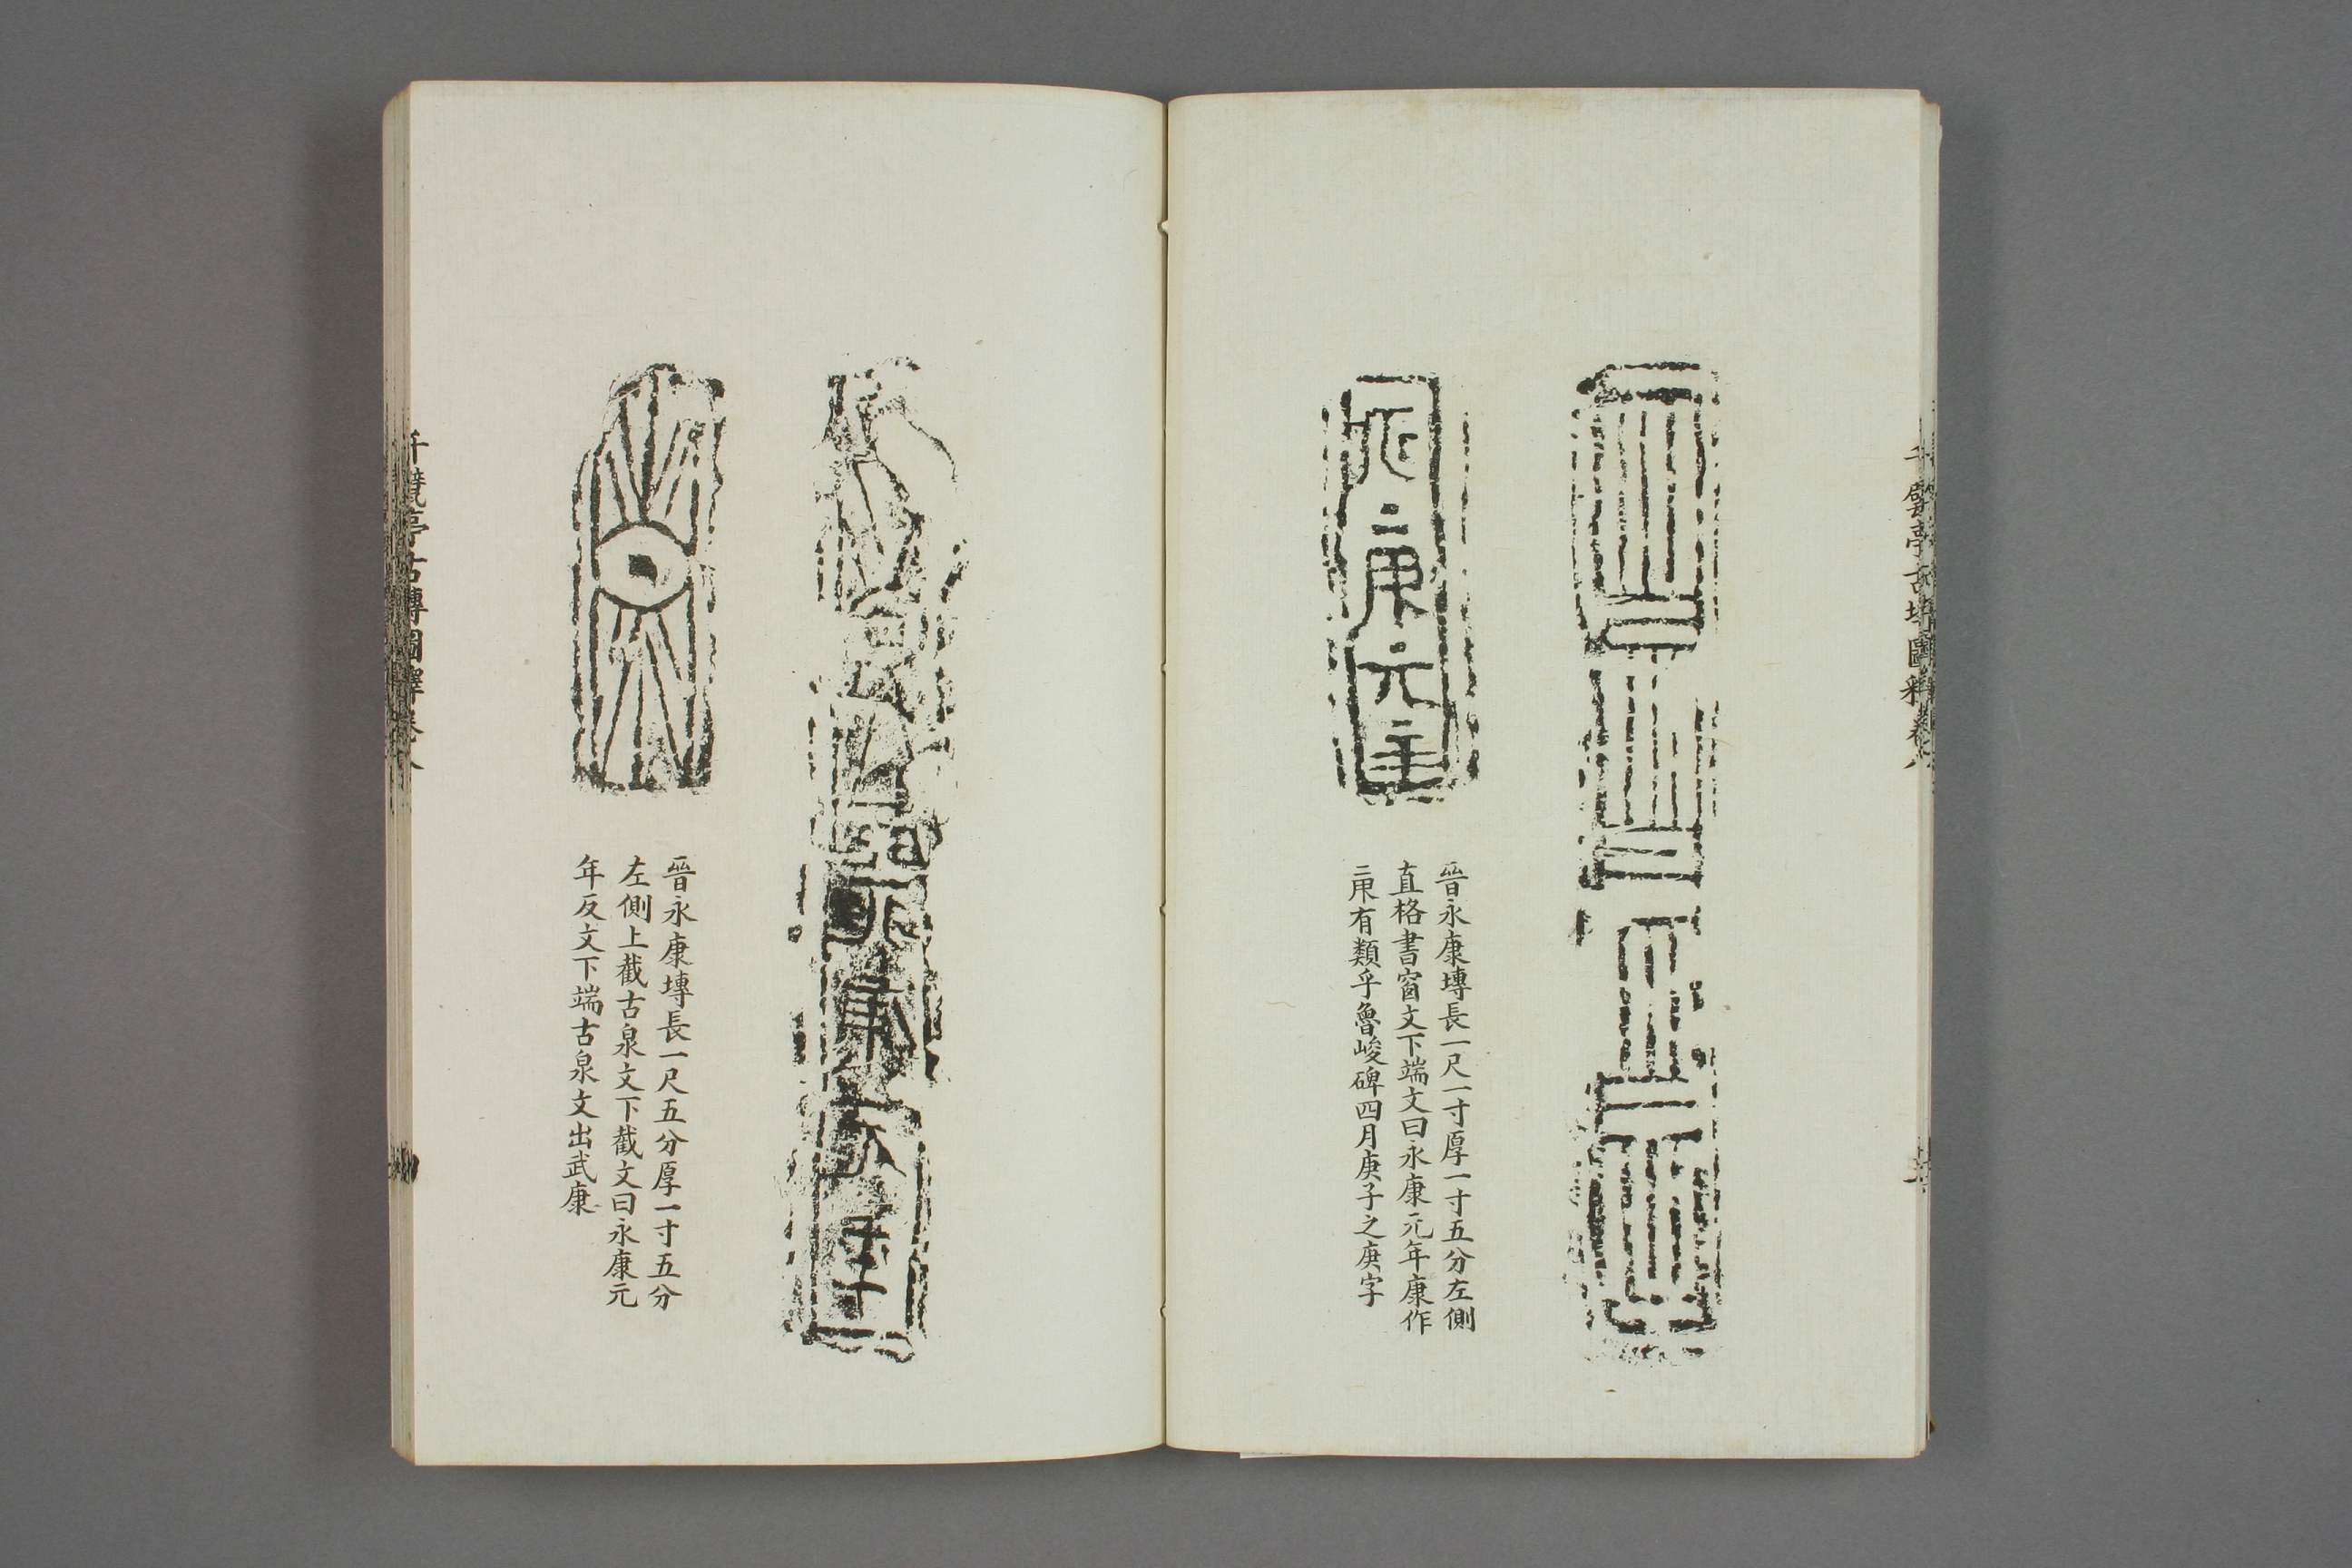 永康元年
晉永康塼長一尺一寸厚一寸五分左側
直格書窗文下端文曰永康元年康作
𢈔有類乎魯峻碑四月庚子之庚字
晉永康塼長一尺五分厚一寸五分
左側上截古泉文下截文曰永康元
年反文下端古泉文出武康
千甓亭古塼圖釋卷八